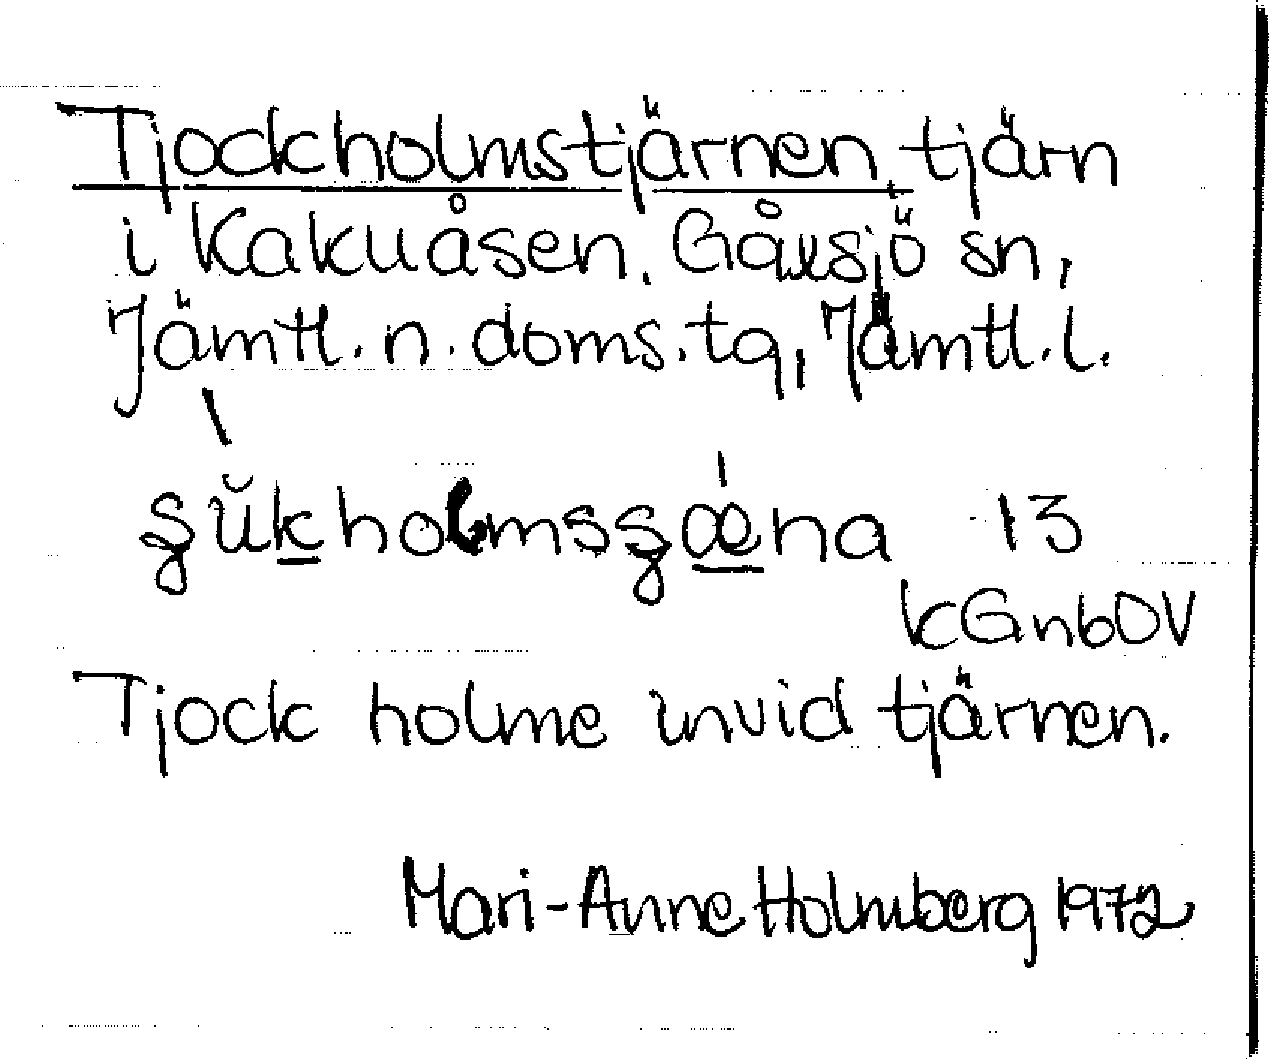 Tjockholmstjärnen, tjärn
i Kakuåsen, Gåxsjö sn,
Jämtl. n. doms. tg, Jämtl. l.
13
kGnbDV
Tjock holme invid tjärnen.
Mari-Anne Holmberg 1972